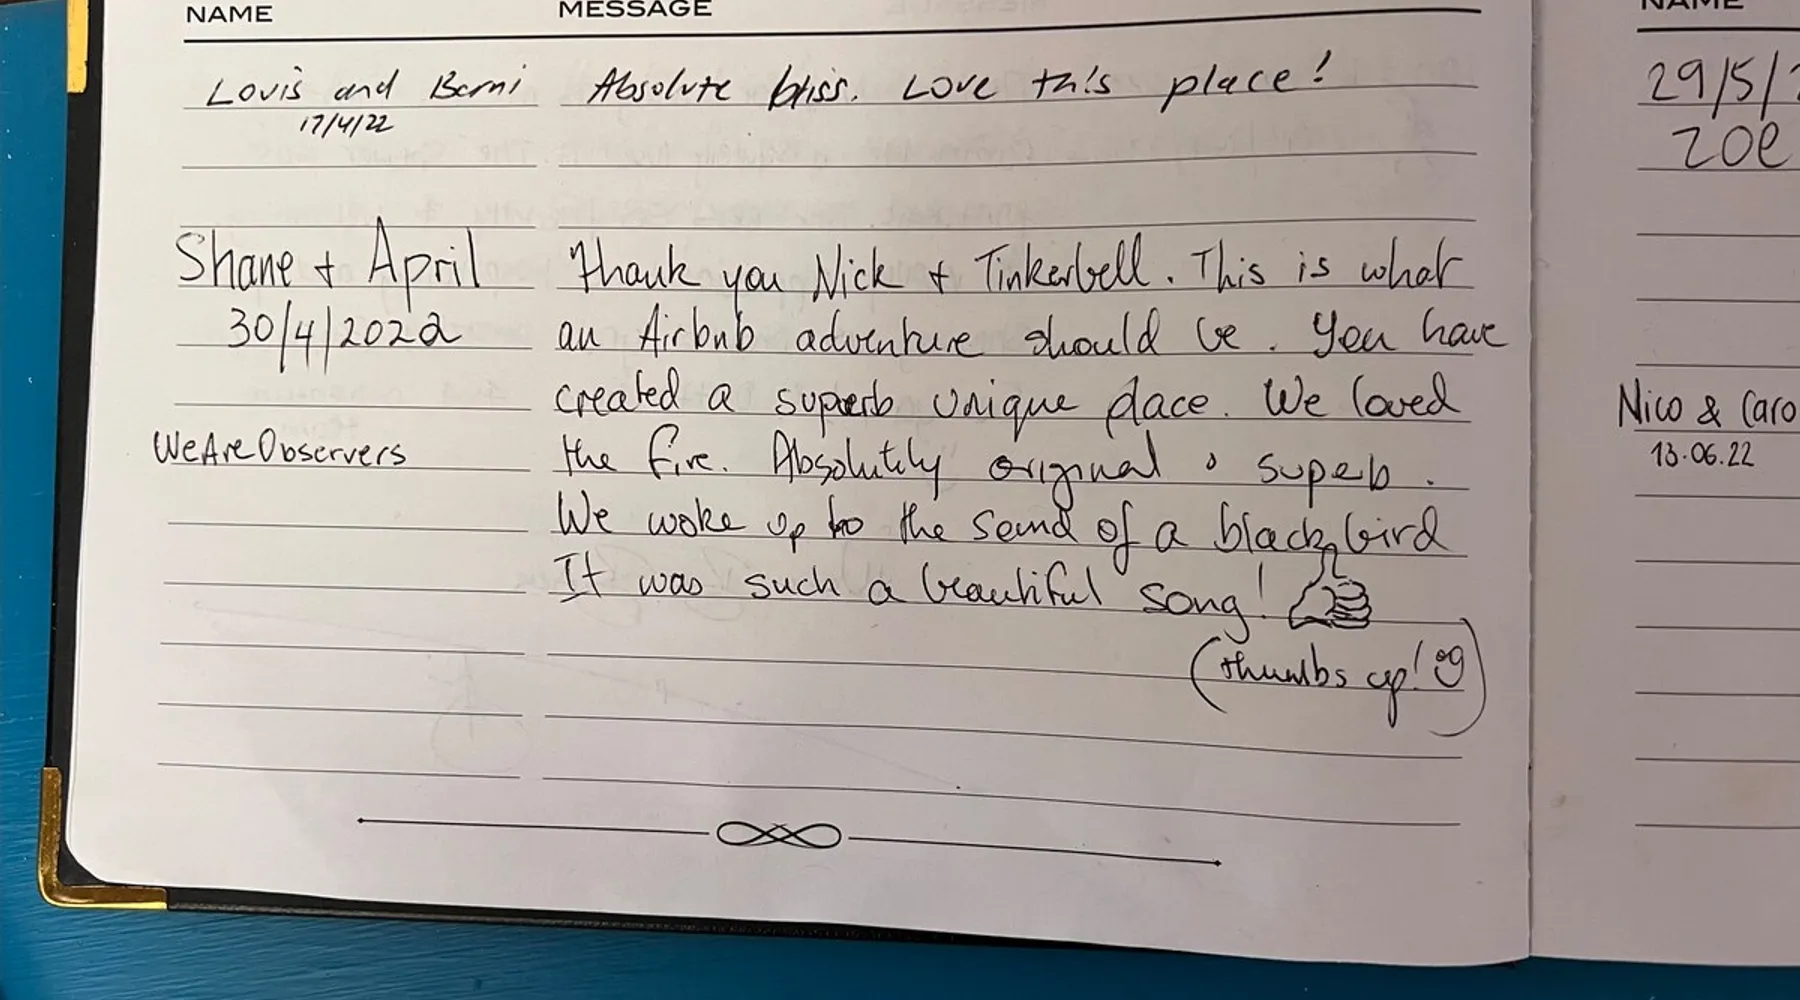 NAME MESSAGE
Lovis and Berni Absolute bliss. Love this place!
17/4/22
Shane + April Thank you Nick + Tinkerbell. This is what
30/4/2022 an Airbnb adventure should be. You have
created a superb unique place. We loved
WeAreObservers the fire. Absolutily original & superb.
We woke up to the sound of a black bird
It was such a beautiful song!
(thumbs up!)
NAME
29/5/
Zoe
Nico & Caro
13.06.22